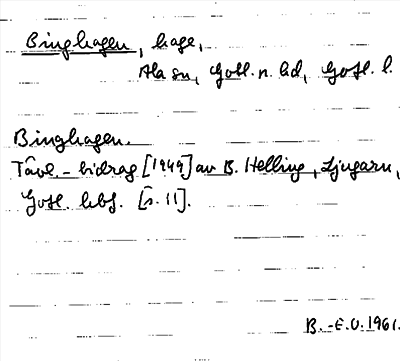 Binghagen, hage,
Ala sn, Gotl. n. hd, Gotl. l.
Binghagen.
Tävl.-bidrag [1949] av B. Helling, Ljugarn,
Gotl. hbf. [s. 11].
B.-E.O. 1961.